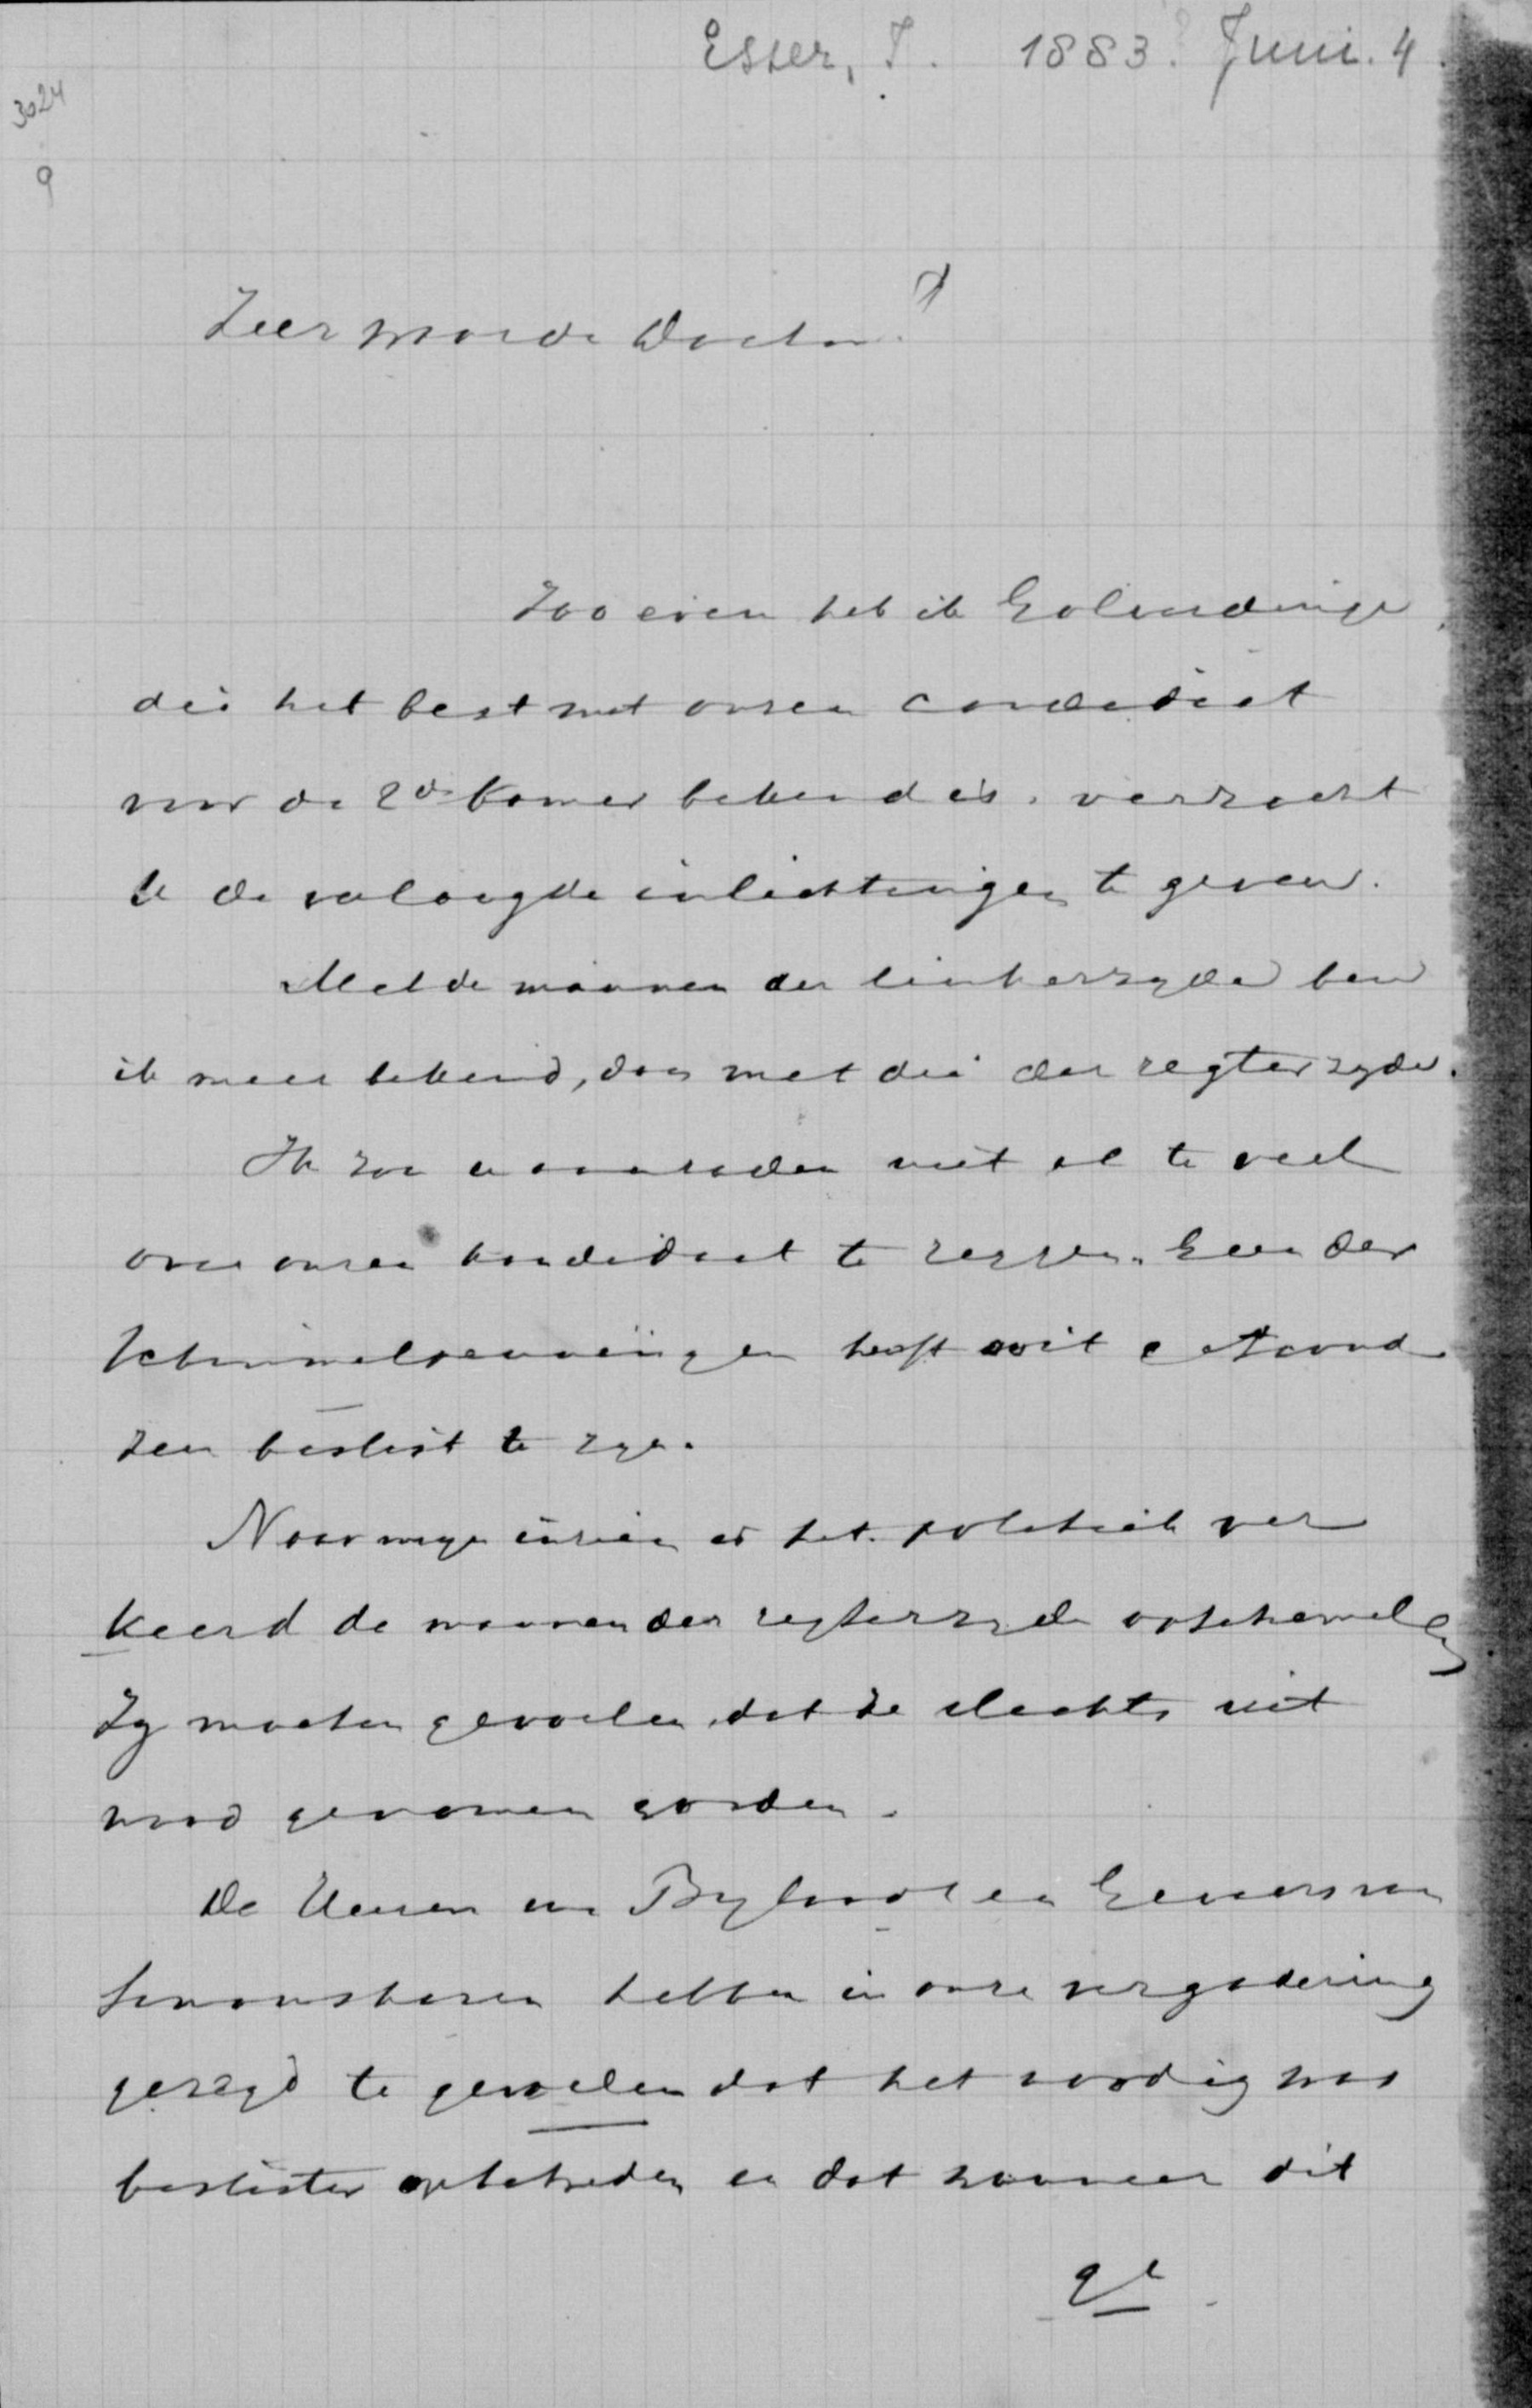 Esser, I. 1883? Juni. 4.
3024
9
Zeer waarde Doctor!
Zoo even heb ik Golverdinge,
die het best met onzen candidaat
voor de 2de Kamer bekend is, verzocht
U de verlangde inlichtingen te geven.
Met de mannen der linkerzyde ben
ik meer bekend, dan met die der regterzyde.
Ik zou u aanraden niet al te veel
over onzen kandidaat te zeggen. Een der
Schimmelpenningen heeft ooit
zeer beslist te zyn.
Naar mijn inzien is het politiek ver
keerd de mannen der regterzyde op te hemelen
Zy moeten gevoelen dat ze slechts uit
nood genomen worden.
De Heeren van Bylandt en Gevers van
hebben in onze vergadering
gezegd te gevoelen dat het noodig was
beslister op te treden en dat wanneer dit
ge